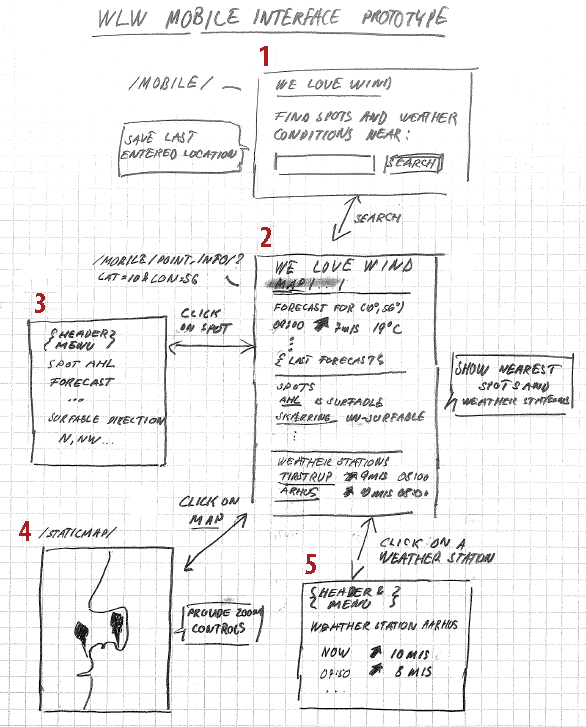 WLW MOBILE INTERFACE PROTOTYPE
1
/MOBILE/
WE LOVE WIND
FIND SPOTS AND WEATHER
CONDITIONS NEAR:
SEARCH
SAVE LAST
ENTERED LOCATION
SEARCH
2
/MOBILE/POINT-INFO/?
LAT=10&LON=56
WE LOVE WIND
MAP | ... |
FORECAST FOR (10°, 56°)
09:00 7m/s 19°C
:
{ LAST FORECAST }
SPOTS
AHL IS SURFABLE
SKÆRRING UN-SURFABLE
:
WEATHER STATIONS
TIRSTRUP 9 M/S 08:00
ARHUS M/S 08:00
SHOW NEAREST
SPOTS AND
WEATHER STATIONS
3
CLICK
ON SPOT
{HEADER &}
{MENU}
SPOT AHL
FORECAST
...
SURFABLE DIRECTION
N, NW...
4
/STATICMAP/
CLICK ON
MAP
PROVIDE ZOOM
CONTROLS
5
CLICK ON A
WEATHER STATION
{HEADER &}
{MENU}
WEATHER STATION AARHUS
NOW 10 M/S
07:50 8 M/S
...